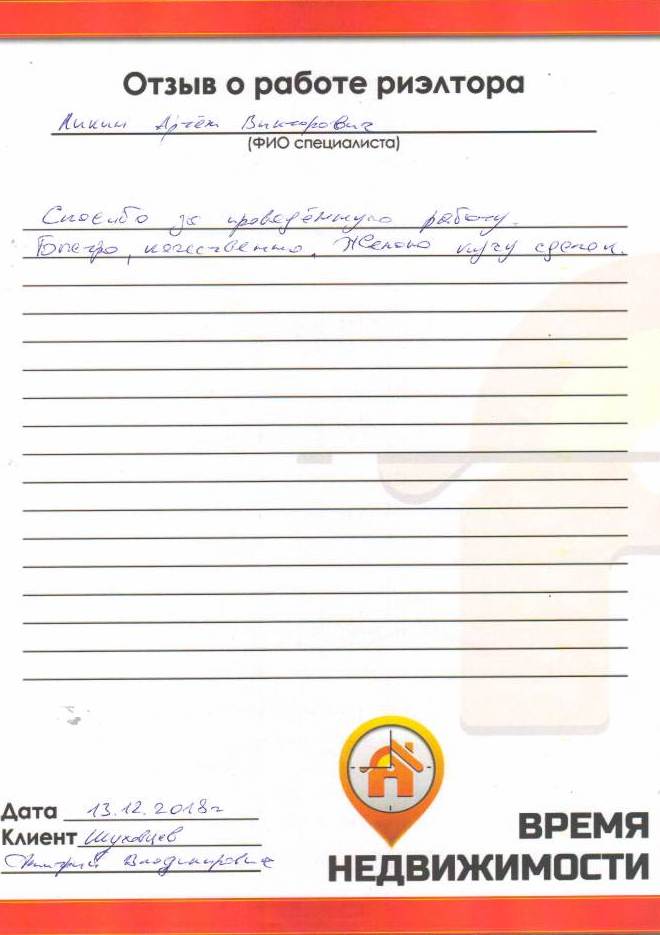 Отзыв о работе риэлтора
Артём Викторович
(ФИО специалиста)
Спасибо за проведённую работу.
Быстро, качественно, Желаю кучу сделок.
Дата 13.12.2018г
Клиент
Дмитрий Владимирович
ВРЕМЯ
НЕДВИЖИМОСТИ